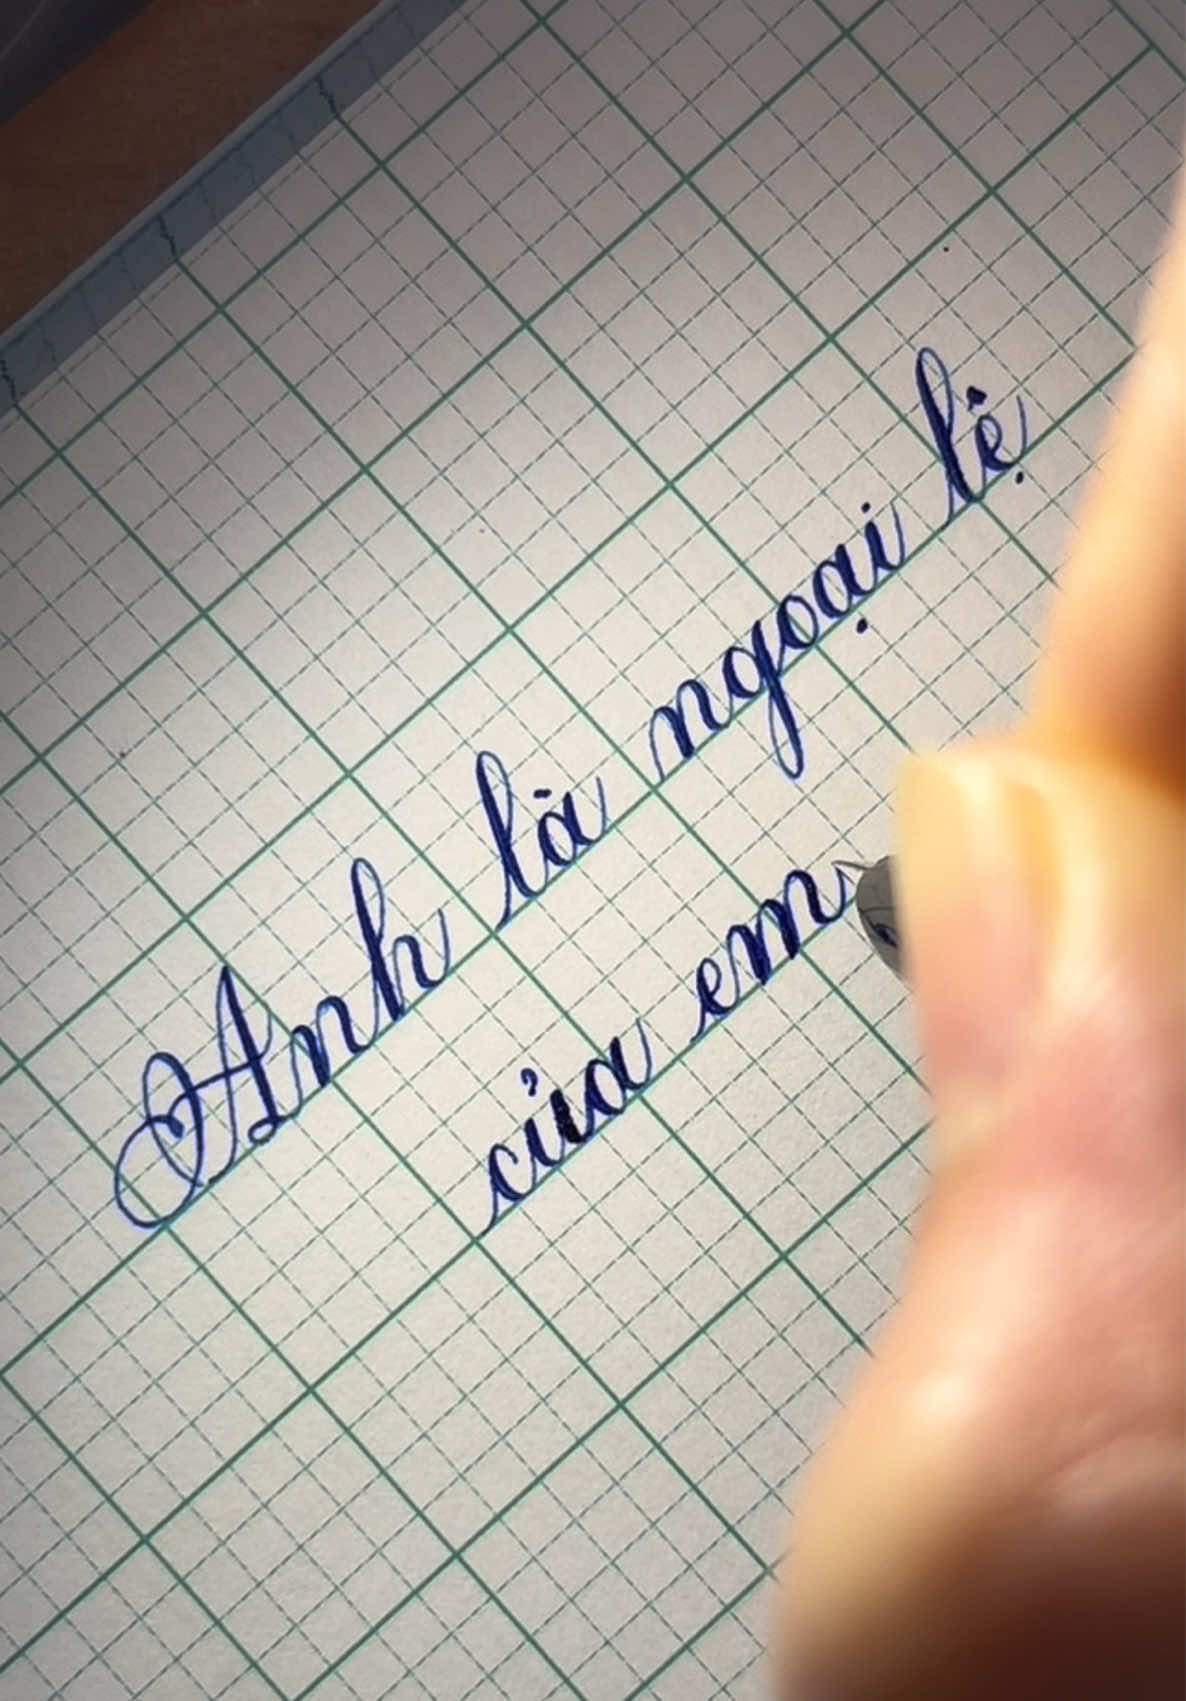 Anh là ngoại lệ
của em